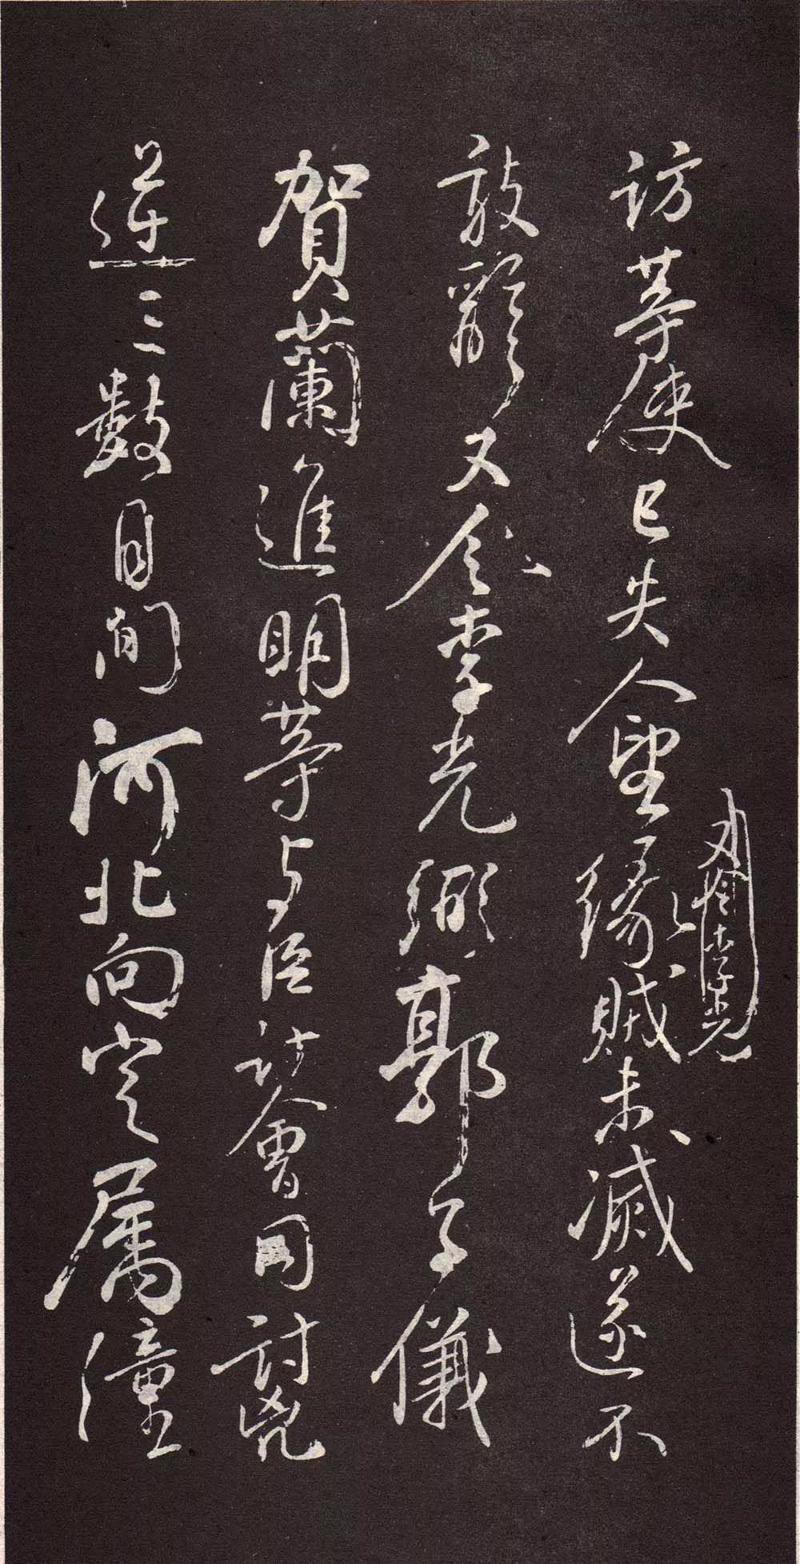 訪等使已失人望緣賊未滅遂不
又令李光
敢辭又令李光弼郭子儀
賀蘭進明等与臣計會同討兇
逆三數月間河北向定属潼